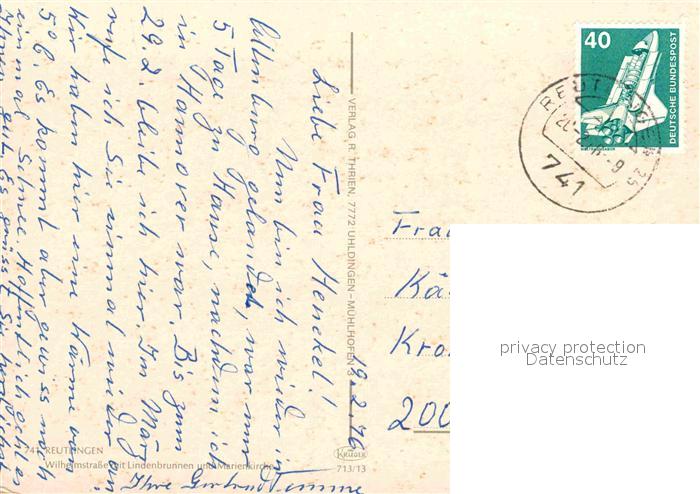 19.2.76
Liebe Frau Henckel!
Nun bin ich wieder in
gelandet, war nur
5 Tage zu Hause, nachdem ich
in Hannover war. Bis zum
29.2. bleibe ich hier. Im März
rufe ich Sie einmal wieder an
Wir haben hier eine Wärme von
5° C. Es kommt aber gewiss noch
einmal Schnee. Hoffentlich geht es
Ihnen gut. Es grüsst Sie herzlichst
Ihre Gertrud Timme
741 REUTLINGEN
Wilhelmstraße mit Lindenbrunnen und Marienkirche
VERLAG R. THRIEN, 7772 UHLDINGEN-MÜHLHOFEN 3
KRÜGER
713/13
40
DEUTSCHE BUNDESPOST
REUTLINGEN
741
Frau
Kä
Kro
200
privacy protection
Datenschutz